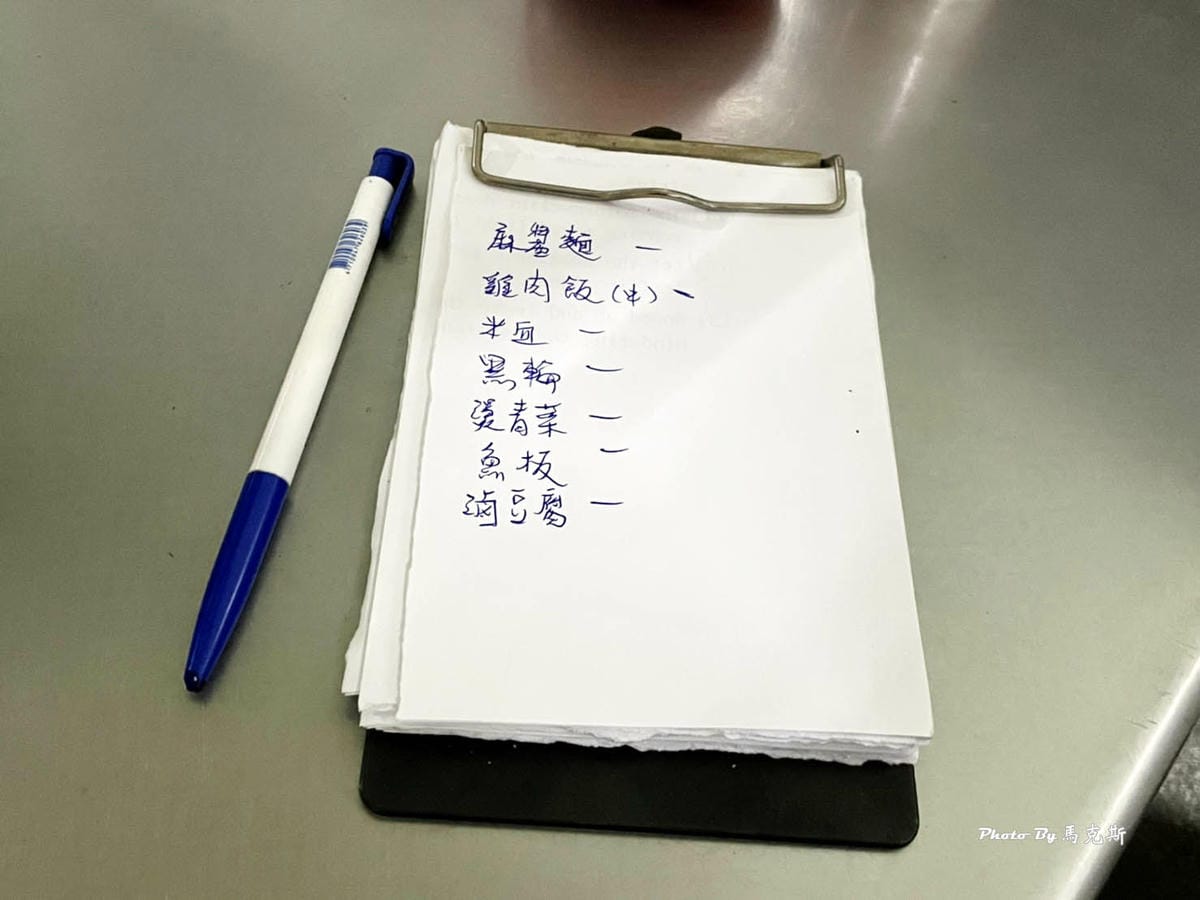 麻醬麵 一
雞肉飯(小) 一
米血 一
黑輪 一
燙青菜 一
魚板 一
滷豆腐 一
Photo By 馬克斯